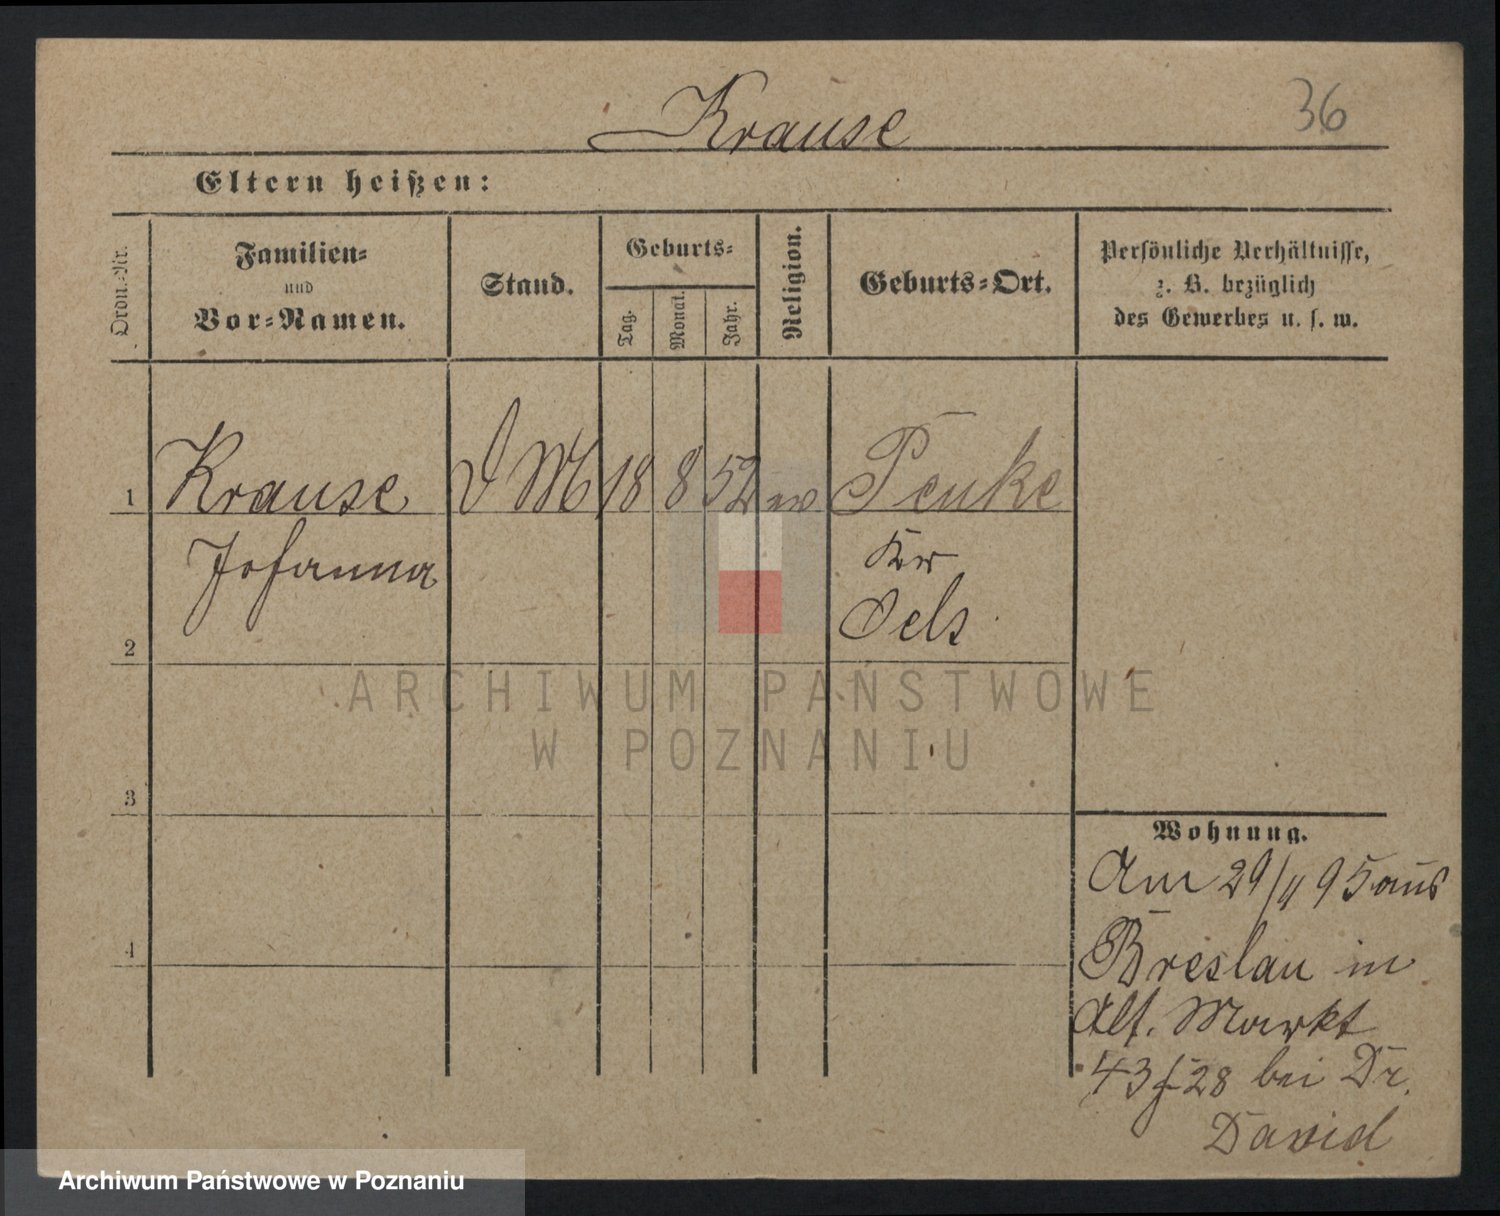 Krause
36
Eltern heißen:
Ordn.-Nr.
Familien-
und
Vor-Namen.
Stand.
Geburts-
Tag.
Monat.
Jahr.
Religion.
Geburts-Ort.
Persönliche Verhältnisse,
z. B. bezüglich
des Gewerbes u. s. w.
1 Krause D M 18 8 52 ev Peuke
Johanna Kr
2 Oels
ARCHIWUM PAŃSTWOWE
W POZNANIU
3
Wohnung.
Am 29/4 95 aus
4 Breslau in
Alt. Markt
43 f 28 bei Dr.
David
Archiwum Państwowe w Poznaniu